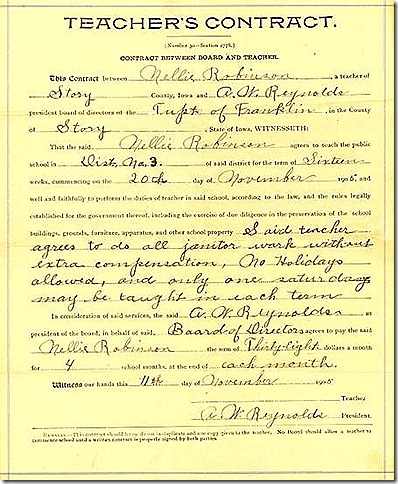 TEACHER'S CONTRACT.
(Number 30—Section 2778.)
CONTRACT BETWEEN BOARD AND TEACHER.
This Contract between Nellie Robinson, a teacher of
Story County, Iowa and A. W. Reynolds
president board of directors of the Twpt of Franklin, in the County
of Story, State of Iowa, WITNESSETH:
That the said Nellie Robinson agrees to teach the public
school in Dist. No. 3. of said district for the term of Sixteen
weeks, commencing on the 20th day of November 1905, and
well and faithfully to perform the duties of teacher in said school, according to the law, and the rules legally
established for the government thereof, including the exercise of due diligence in the preservation of the school
buildings, grounds, furniture, apparatus, and other school property Said teacher
agrees to do all janitor work without
extra compensation, No Holidays
allowed, and only one saturday
may be taught in each term
In consideration of said services, the said A. W. Reynolds as
president of the board, in behalf of said Board of Directors agrees to pay the said
Nellie Robinson the sum of Thirty-Eight dollars a month
for 4 school months, at the end of each month.
Witness our hands this 11th day of November 1905
Teacher
A. W. Reynolds President.
REMARK—This contract should be made out in duplicate and one copy given to the teacher. No Board should allow a teacher to
commence school until a written contract is properly signed by both parties.